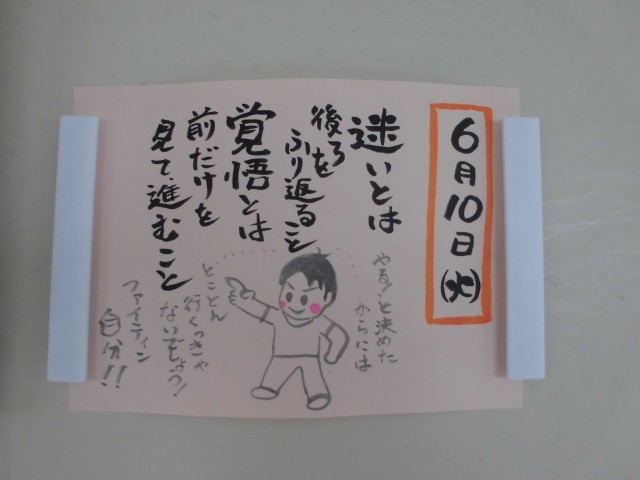 6月10日(火)
迷いとは
後ろを
ふり返ること
覚悟とは
前だけを
見て、進むこと
やる!と決めた
からには
とことん
行くっきゃ
ないでしょう!
ファイティン
自分!!